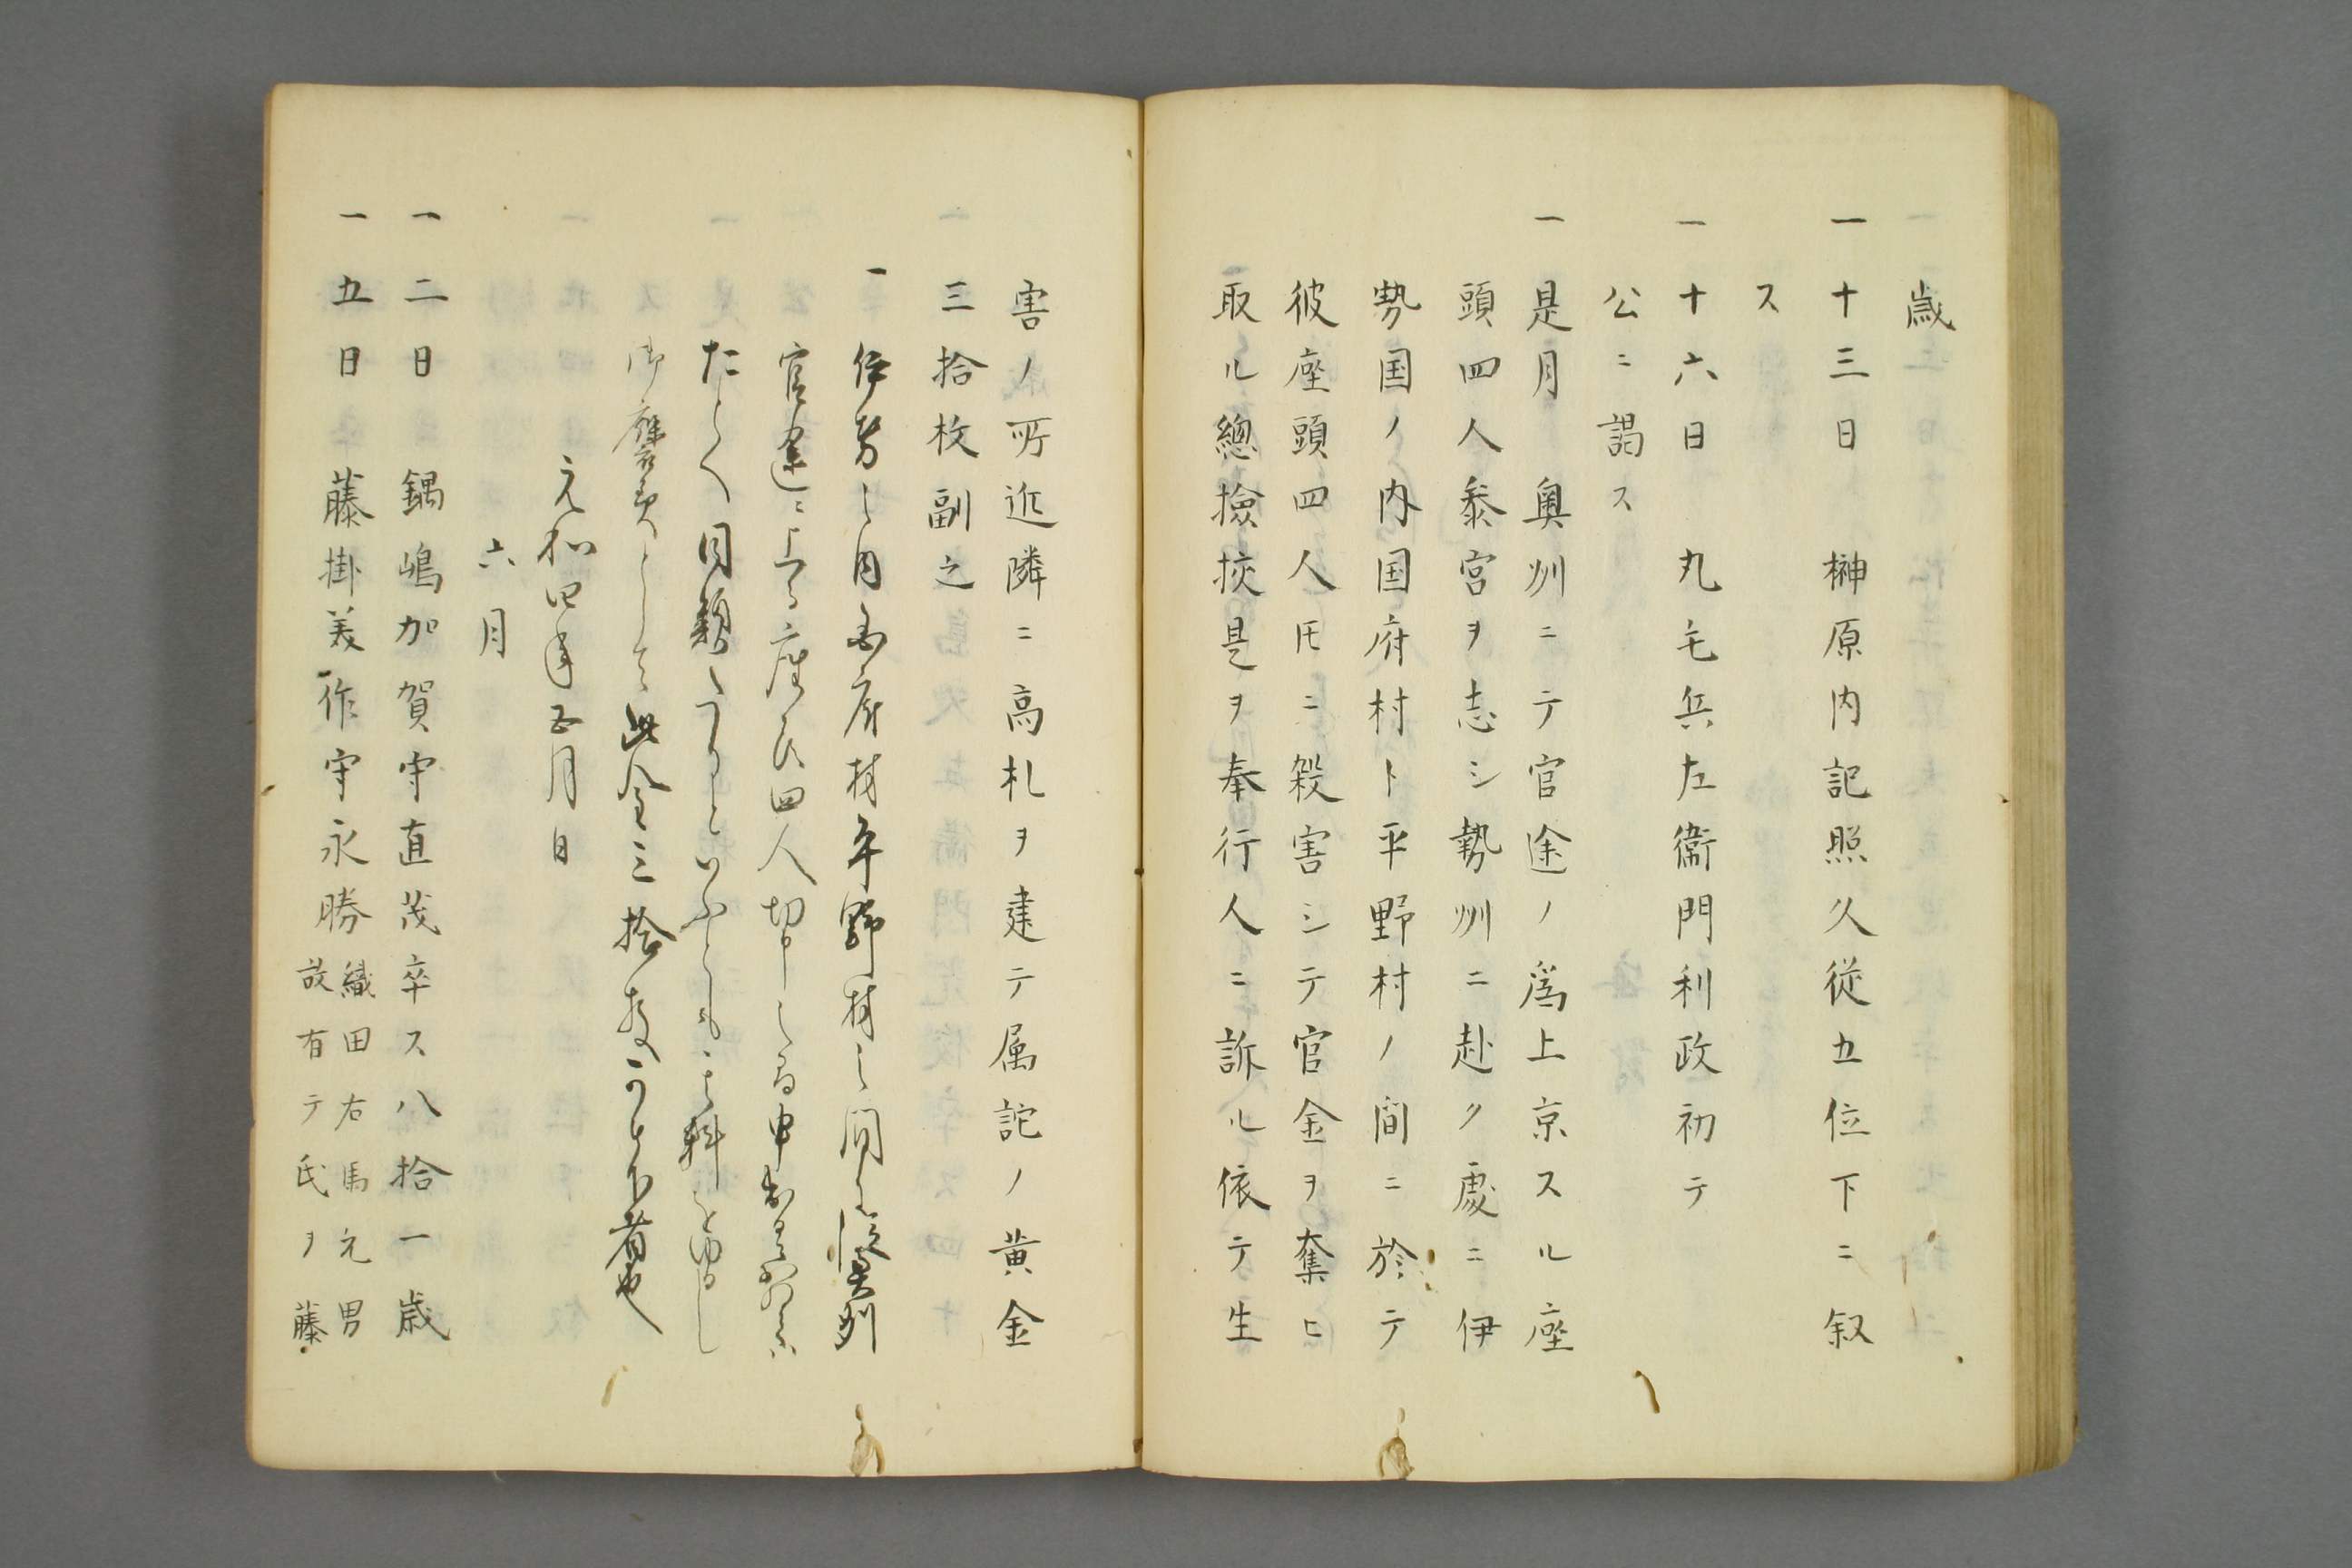 歳
一十三日　榊原内記照久従五位下ニ叙
ス
一十六日　丸毛兵左衛門利政初テ
公ニ謁ス
一是月　奥州ニテ官途ノ為上京スル座
頭四人参宮ヲ志シ勢州ニ赴ク處ニ伊
勢国ノ内国府村ト平野村ノ間ニ於テ
彼座頭四人𪜈ニ殺害シテ官金ヲ奪ヒ
取ル總撿挍是ヲ奉行人ニ訴ル依テ生
害ノ所近隣ニ高札ヲ建テ属詑ノ黄金
三拾枚副之
一伊勢之内国府村平野村之間ニ而従奥州
官途ニ上る座頭四人切
たとへ同類たりといふとも其科をゆるし
御褒美として此金三拾枚可被下者也
元和四年正月日
六月
一二日　鍋嶋加賀守直茂卒ス八拾一歳
一五日　藤掛美作守永勝織田右馬元男
故有テ氏ヲ藤